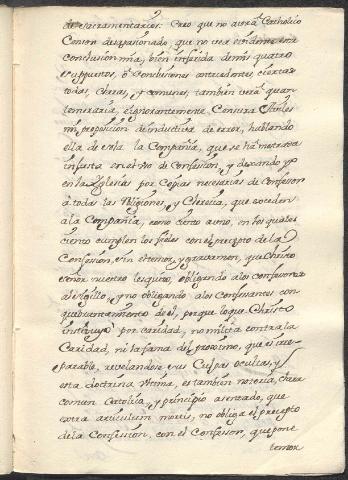 de Sacramentarios. Creo que no avera Catholico
Censor desapasionado, que no vea evidente esta
conclusion mia, bien inferida de mis quatro
supuestos, o conclusiones antecedentes, ciertas
todas, claras, y comunes, tambien verà quan
temeraria, è ignorantemente Censura
mi proposicion de inductiva de error, hablando
ella de sola la Compañia, que se ha
en el de Confession, y dexando yo
en la Iglesia por copias necesarias de Confessor
à todas las Religiones, y Clerecia, que exceden
a la Compañia, como ciento a uno, en los quales
ciento cumplen los fieles con el precepto de la
Confession, sin el temor, y gravamen, que Christo
señor nuestro les quito, obligando a los confessores
al sigillo, y no obligando a los Confesantes con
quebrantamiento de el, porque lo que Christo
instituyò por caridad, no milita contra la
Caridad, ni la fama del proximo, que es irre-
parable, revelandose sus Culpas ocultas, y
esta doctrina ultima, es tambien notoria, clara
comun Catolica, y principio asentado, que
extra articulum mortis, no obliga el precepto
de la Confession, con el Confessor, que pone
temor